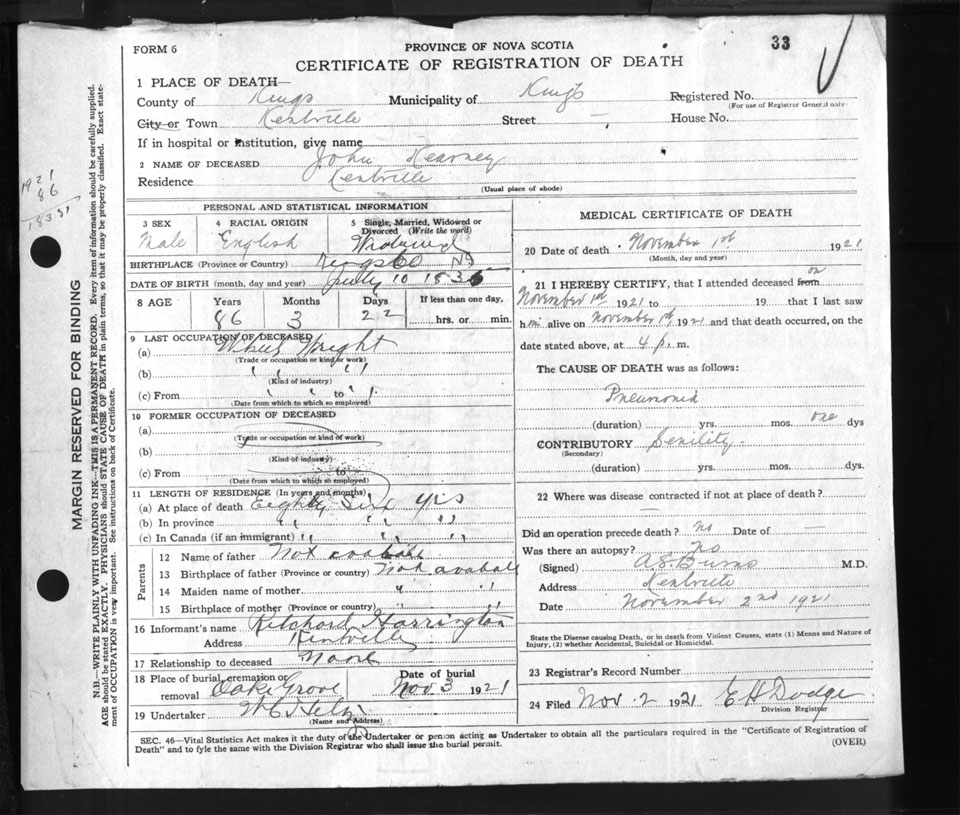 33
FORM 6
PROVINCE OF NOVA SCOTIA
CERTIFICATE OF REGISTRATION OF DEATH
1 PLACE OF DEATH—
County of Kings Municipality of Kings Registered No.
(For use of Registrar General only
City or Town Kentville Street — House No.
If in hospital or institution, give name
2 NAME OF DECEASED John Kearney
Residence Kentville
(Usual place of abode)
1921
86
1835
MARGIN RESERVED FOR BINDING
N.B—WRITE PLAINLY WITH UNFADING INK—THIS IS A PERMANENT RECORD. Every item of information should be carefully supplied.
AGE should be stated EXACTLY. PHYSICIANS should STATE CAUSE OF DEATH in plain terms, so that it may be properly classified. Exact state-
ment of OCCUPATION is very important. See instructions on back of Certificate.
PERSONAL AND STATISTICAL INFORMATION
3 SEX 4 RACIAL ORIGIN 5 Single, Married, Widowed or
Divorced (Write the word)
Male English Widowed
BIRTHPLACE (Province or Country) Kings Co NS
DATE OF BIRTH (month, day and year) July 10 1835
8 AGE Years Months Days If less than one day,
86 3 22 hrs. or min.
9 LAST OCCUPATION OF DECEASED
(a) Wheel Wright
(Trade or occupation or kind of work)
(b) " " "
(Kind of industry)
(c) From " " to "
(Date from which to which so employed)
10 FORMER OCCUPATION OF DECEASED
(a)
(Trade or occupation or kind of work)
(b)
(Kind of industry)
(c) From to
(Date from which to which so employed)
11 LENGTH OF RESIDENCE (In years and months)
(a) At place of death Eighty Six yrs
(b) In province " " "
(c) In Canada (if an immigrant) " " "
Parents
12 Name of father Not avabale
13 Birthplace of father (Province or country) Not avabale
14 Maiden name of mother " "
15 Birthplace of mother (Province or country) " "
16 Informant's name Ritchard Harrington
Address Kentville
17 Relationship to deceased None
18 Place of burial, cremation or removal Oak Grove Date of burial Nov. 3 1921
19 Undertaker
(Name and Address)
MEDICAL CERTIFICATE OF DEATH
20 Date of death November 1st 1921
(Month, day and year)
21 I HEREBY CERTIFY, that I attended deceased from on
November 1st 1921 to 19 that I last saw
him alive on November 1st, 1921 and that death occurred, on the
date stated above, at 4 p. m.
The CAUSE OF DEATH was as follows:
Pneumonia
(duration) yrs. mos. one dys
CONTRIBUTORY Senility
(Secondary)
(duration) yrs. mos. dys.
22 Where was disease contracted if not at place of death?
Did an operation precede death? No Date of —
Was there an autopsy? No
(Signed) A.S. Burns M.D.
Address Kentville
Date November 2nd 1921
State the Disease causing Death, or in death from Violent Causes, state (1) Means and Nature of
Injury, (2) whether Accidental, Suicidal or Homicidal.
23 Registrar's Record Number
24 Filed Nov. 2 1921 E H Dodge
Division Registrar
SEC. 46—Vital Statistics Act makes it the duty of the Undertaker or person acting as Undertaker to obtain all the particulars required in the "Certificate of Registration of
Death" and to fyle the same with the Division Registrar who shall issue the burial permit.
(OVER)